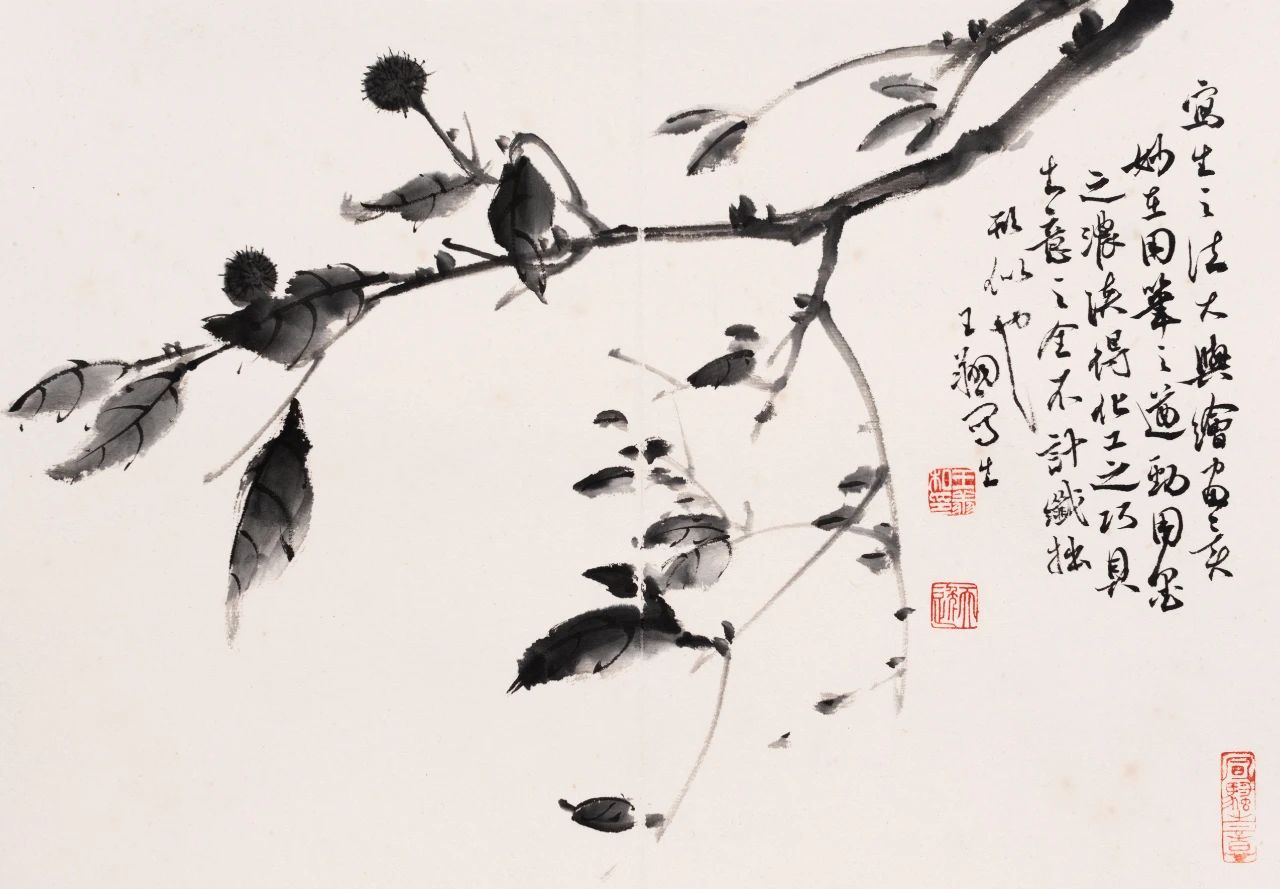 寫生之法大與繪畫之異
妙在用筆之遒勁用墨
之濃淡得化工之巧具
生意之全不計纖拙
形似也
王寫生